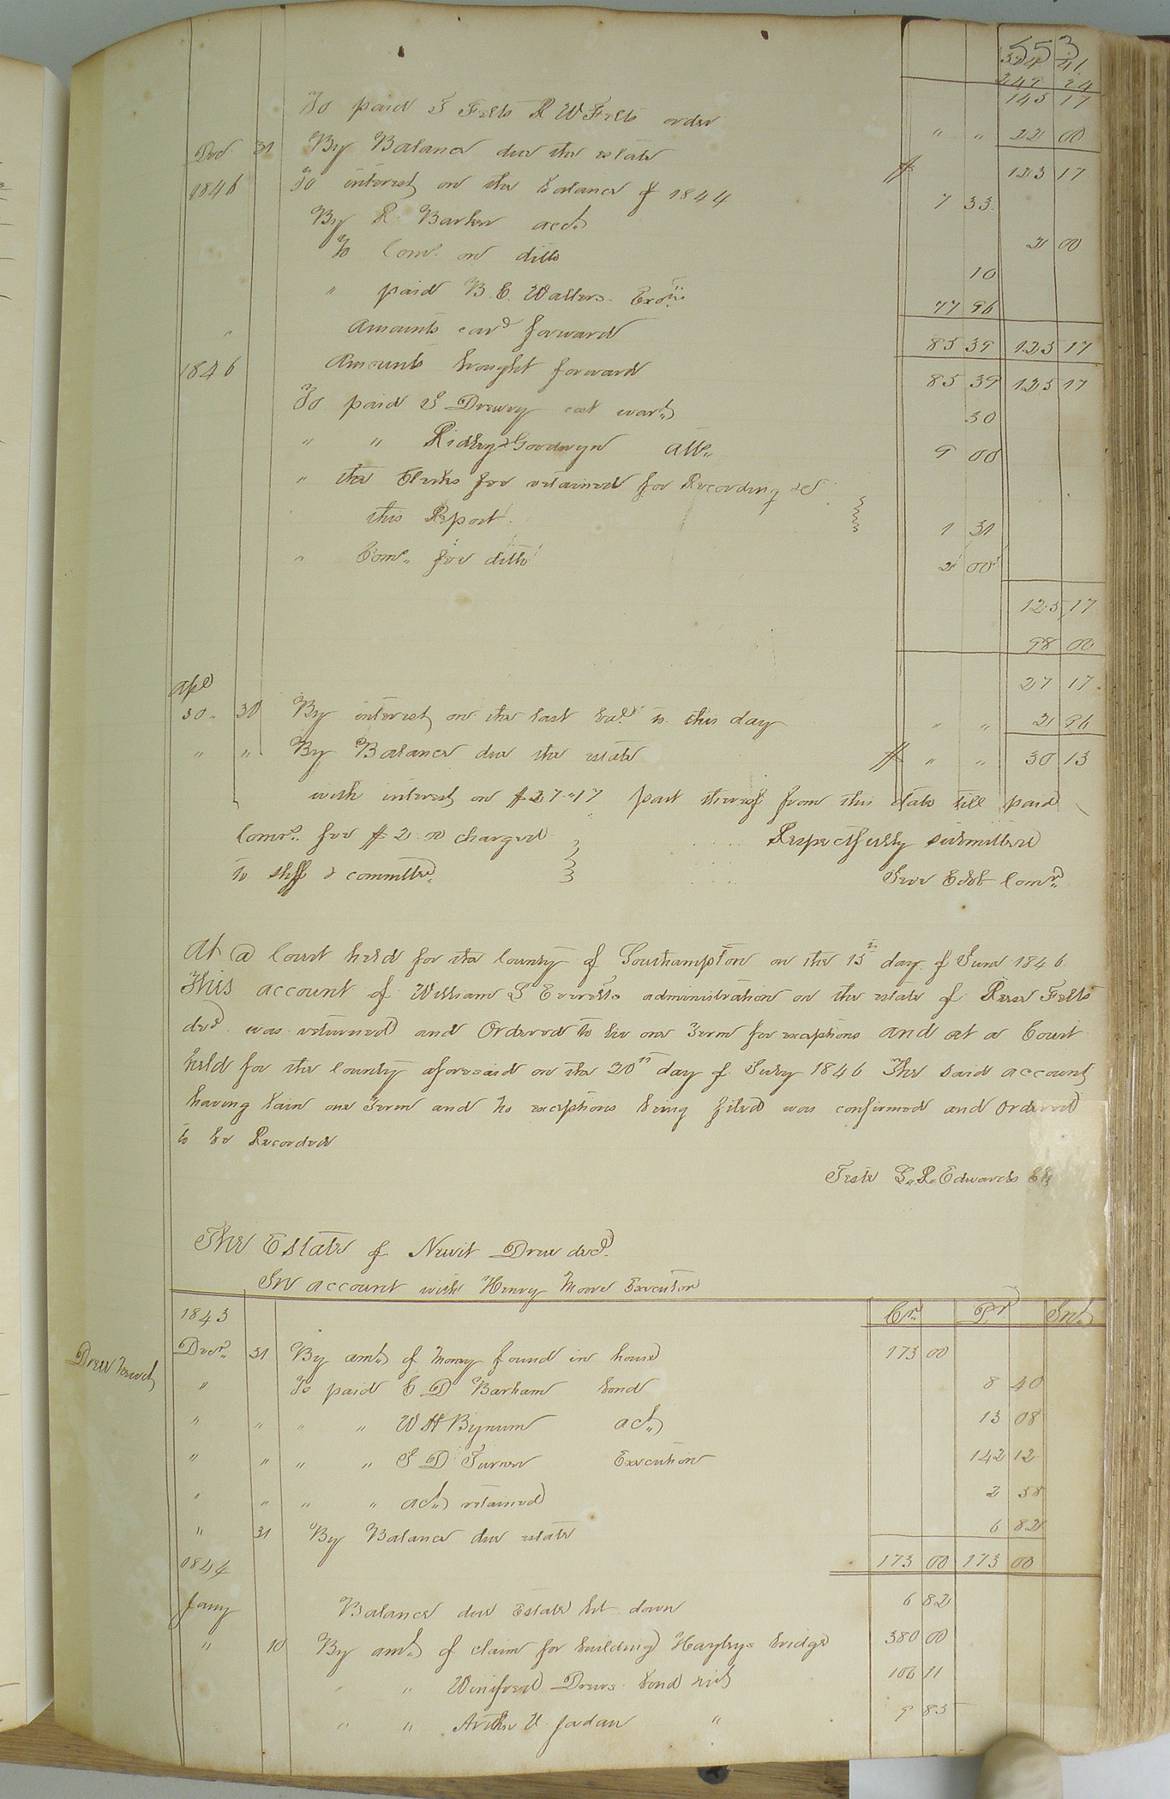 553
324 41
249 24
145 17
To paid S Felts R W Felts order " " 22 00
Dec 31 By Balance due the estate $ 123 17
1846 To interest on the balance of 1844 7 33
By R Barker acct 2 00
To Comn on ditto 10
" paid B. C. Walters Exors 77 96
" Amounts card forward 85 39 125 17
1846 Amounts brought forward 85 39 125 17
To paid S Drewry cost wart 30
" " Ridley & Goodwyn Atto 9 00
" the Clerks fee retained for Recording &c
this Report 1 31
" Comr for ditto 2 00
125 17
98 00
27 17
Apl
30 30 By interest on the last bal to this day " " 2 96
" " By Balance due the estate $ " " 30 13
with interest on $27.17 part thereof from this date till paid
Comrs fee $2.00 charged Respectfully submitted
to shff & committed Comr
At a Court held for the County of Southampton on the 15th day of June 1846
This account of William S Everetts administration on the estate of Rese Felts
decd was returned and Ordered to lie one Term for exceptions and at a Court
held for the County aforesaid on the 20th day of July 1846 The said account
having lain one Term and no exceptions being filed was confirmed and Ordered
to be Recorded
Teste L. R. Edwards Clk
The Estate of Newit Drew decd
In account with Henry Moore Executor
1843 Cr Pr Int
Drew Newit
Decr 31 By amt of money found in house 173 00
" To paid C D Barham bond 8 40
" " " " W H Bynum act 13 08
" " " " S D Turner Execution 142 12
" " " " act retained 2 58
" 31 By Balance due estate 6 82
1844 173 00 173 00
Jany Balance due Estate bt down 6 82
" 10 By amt of claim for building Hayleys bridge 380 00
" " Winifred Drews bond 106 11
" " Arthr U Jordan " 9 85